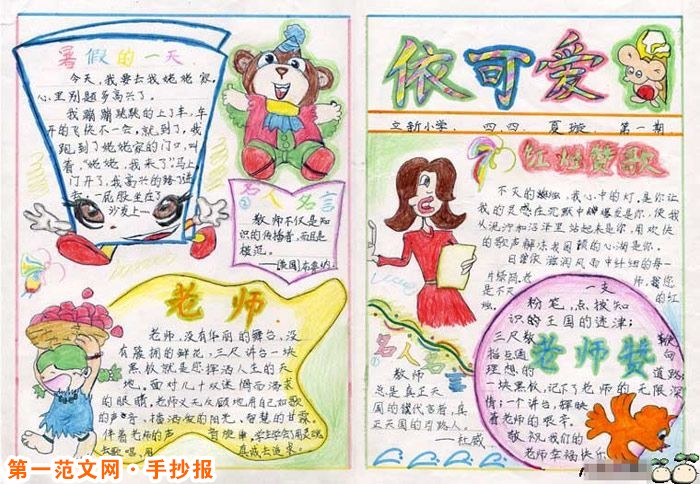 暑假的一天
今天,我要去我姥姥家,
心里别题多高兴了。
我蹦蹦跳跳的上了车,车
开的飞快不一会,就到了,我
跑到了姥姥家的门口,叫
着,"姥姥,我来了"马上
门开了,我高兴的
一屁股坐在
沙发上……
名人名言
②
教师不仅是知
识的传播者,而且是
模范。
老师
老师,没有华丽的舞台,没
有簇拥的鲜花,三尺讲台一块
黑板就是您挥洒人生的天
地。面对几十双迷惘而渴求
的眼睛,老师义无反顾地用自己如歌
的声音,播洒如的阳光,智慧的甘霖。
伴着老师的声
去歌唱,用
真诚去追求。
依可爱
立新小学、四、四、夏璇、第一期
红烛赞歌
不灭的,我心中的灯。是你让
我的灵感在沉默中爆发是你,使我
从泥泞和沼泽里站起来是你,用欢快
的歌声解冻我困顿的心湖是你。
日常你滋润风雨中纤细的每一
是不灭
一支
粉笔,点拨知
识的王国的迷津;
三尺教
老师赞
理想的
道路;
一块黑板,记下了老师的无限深
情;一个讲台,辉映
着老师的艰辛。
敬祝我们的
老师幸福快乐
名人名言
①
教师
总是真正天
国的代言者,真
正天国的引路人。
——杜威
第一范文网·手抄报